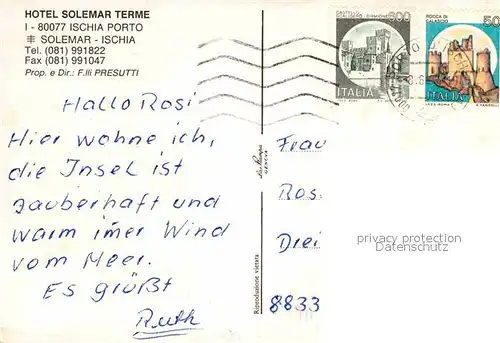 HOTEL SOLEMAR TERME
I - 80077 ISCHIA PORTO
SOLEMAR - ISCHIA
Tel. (081) 991822
Fax (081) 991047
Prop. e Dir.: F.lli PRESUTTI
Hallo Rosi
Hier wohne ich,
die Insel ist
zauberhaft und
warm imer Wind
vom Meer.
Es grüßt
Ruth
Riproduzione vietata
CASTELLO
SCALIGERO - SIRMIONE
600
ITALIA
ROCCA DI
CALASCIO
50
ITALIA
Frau
Ros.
Drei
privacy protection
Datenschutz
8833